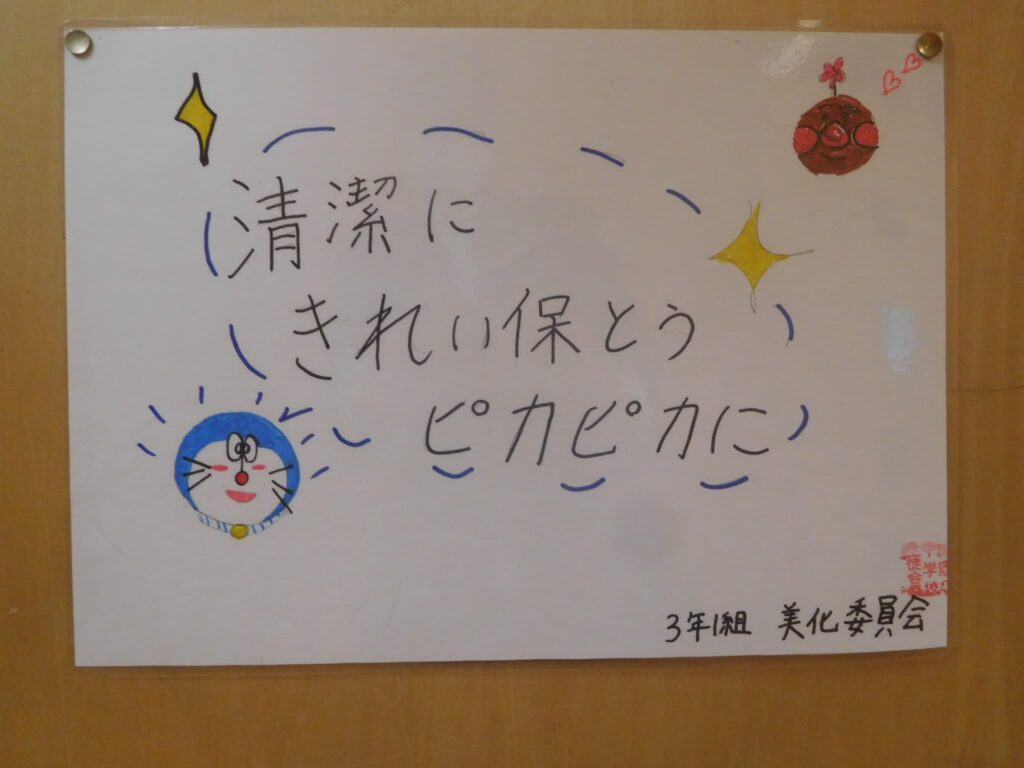 清潔に
きれい保とう
ピカピカに
3年1組 美化委員会